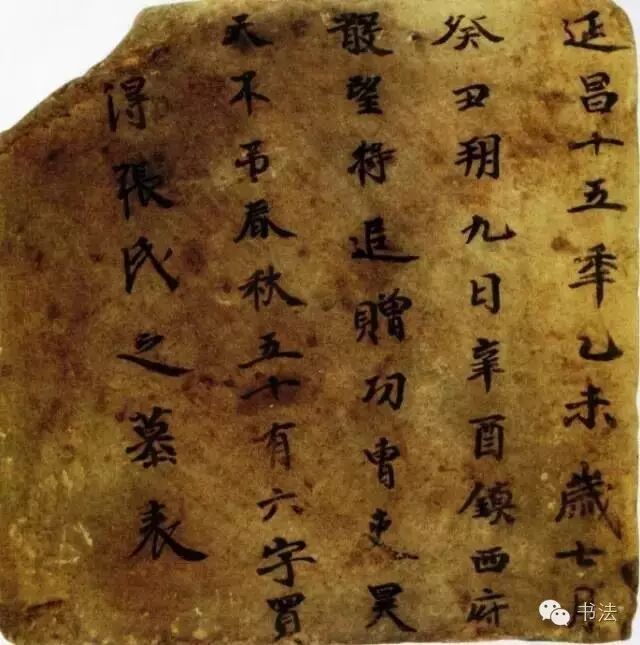 延昌十五年乙未歲七月
癸丑朔九日辛酉鎮西府
散望將追贈功曹吏昊
天不弔春秋五十有六字買
得張氏之墓表
书法